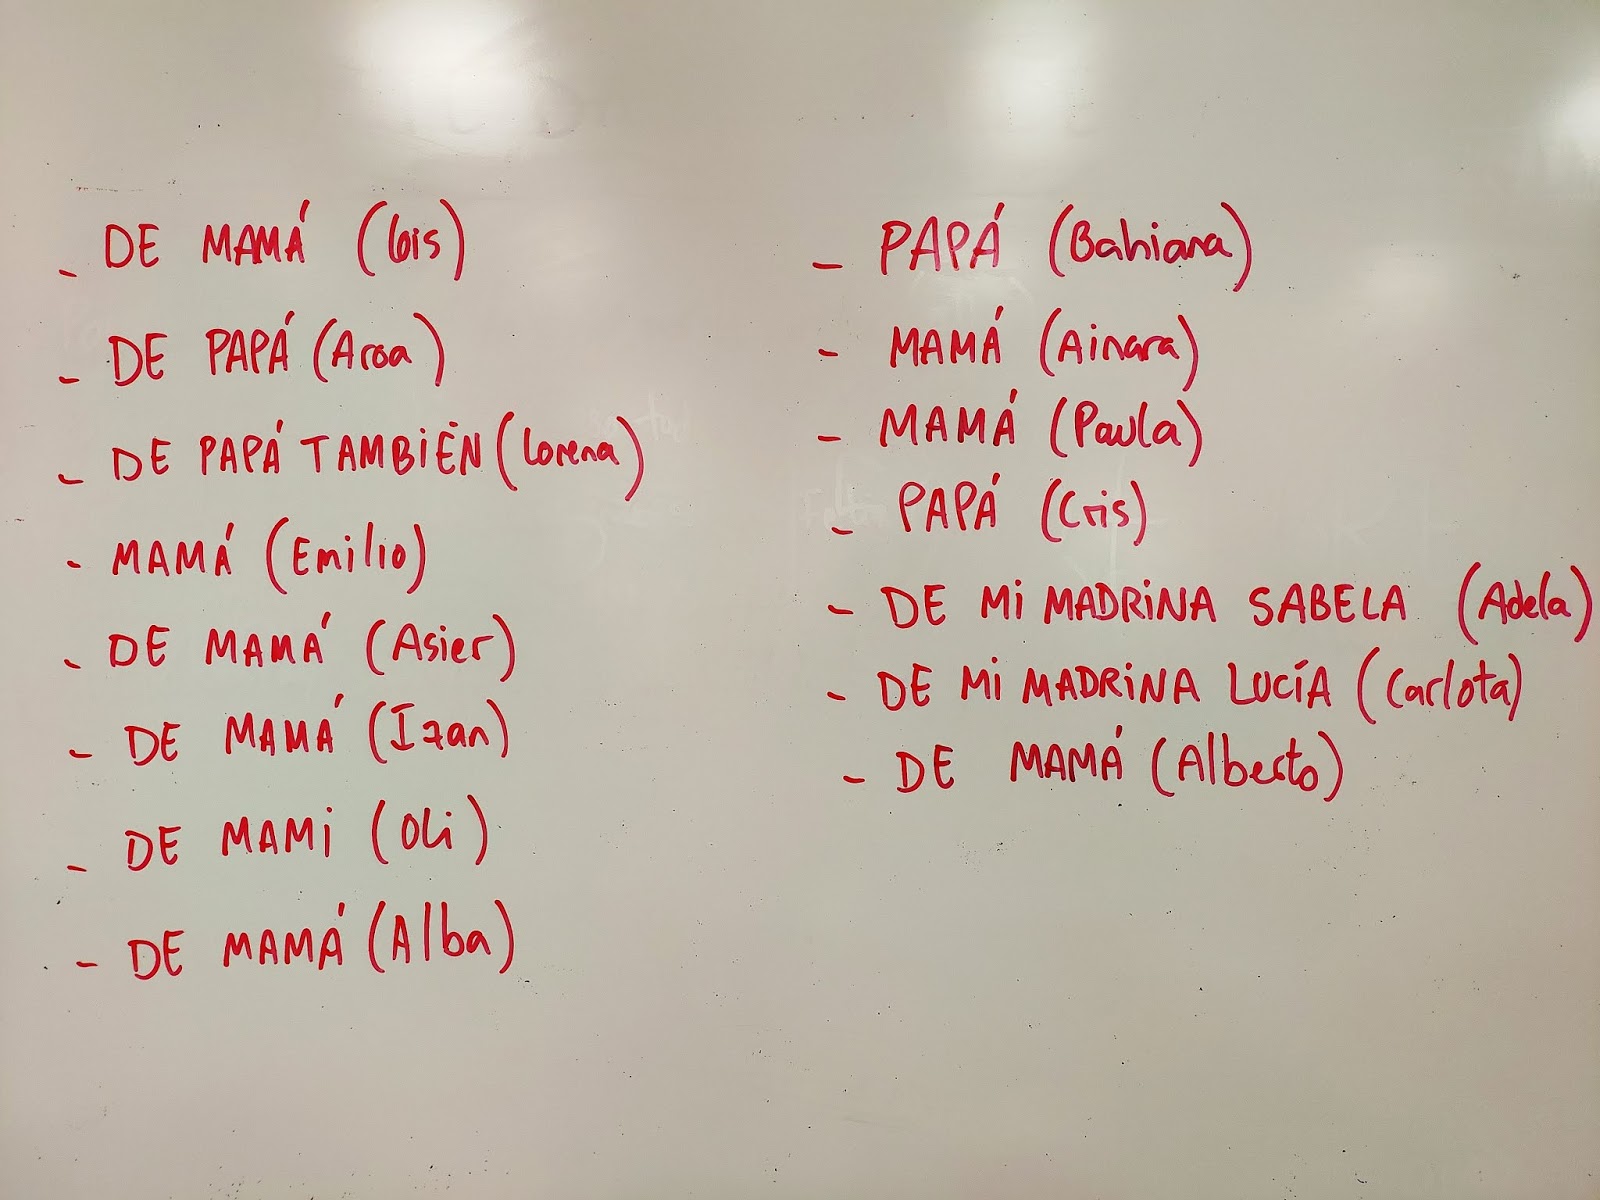 - DE MAMÁ (Lois)
- DE PAPÁ (Aroa)
- DE PAPÁ TAMBIÉN (Lorena)
- MAMÁ (Emilio)
- DE MAMÁ (Asier)
- DE MAMÁ (Izan)
- DE MAMi (Oli)
- DE MAMÁ (Alba)
- PAPÁ (Bahiana)
- MAMÁ (Ainara)
- MAMÁ (Paula)
- PAPÁ (Cris)
- DE Mi MADRiNA SABELA (Adela)
- DE Mi MADRiNA LUCÍA (Carlota)
- DE MAMÁ (Alberto)